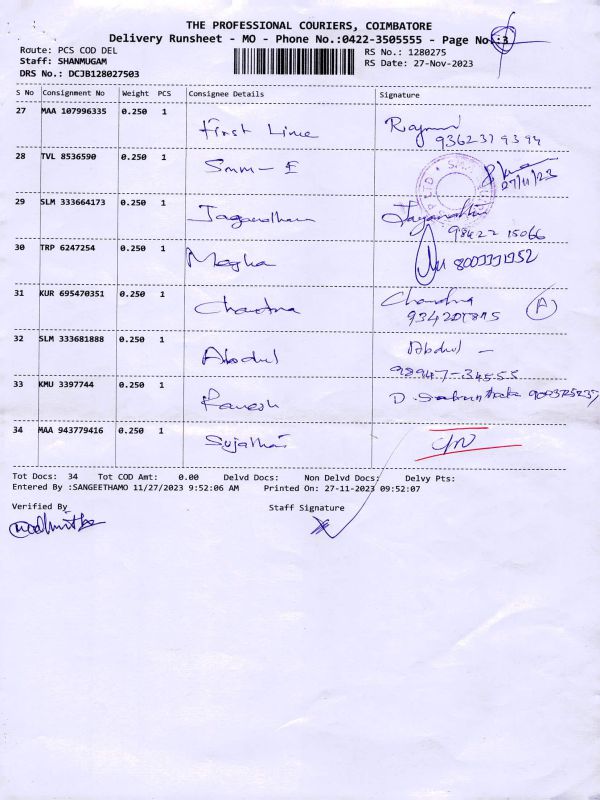 THE PROFESSIONAL COURIERS, COIMBATORE
Delivery Runsheet - MO - Phone No.:0422-3505555 - Page No.:3
Route: PCS COD DEL
RS No.: 1280275
Staff: SHANMUGAM
RS Date: 27-Nov-2023
DRS No.: DCJB128027503
S No Consignment No Weight PCS Consignee Details Signature
27 MAA 107996335 0.250 1 First Line
28 TVL 8536590 0.250 1 Smm - E
27/11/23
29 SLM 333664173 0.250 1
98422 15066
30 TRP 6247254 0.250 1 Megha
31 KUR 695470351 0.250 1 Chandra
A
32 SLM 333681888 0.250 1 Abdul Abdul -
98947-34555
33 KMU 3397744 0.250 1 Ramesh D.
34 MAA 943779416 0.250 1
Tot Docs: 34 Tot COD Amt: 0.00 Delvd Docs: Non Delvd Docs: Delvy Pts:
Entered By :SANGEETHAMO 11/27/2023 9:52:06 AM Printed On: 27-11-2023 09:52:07
Verified By Staff Signature